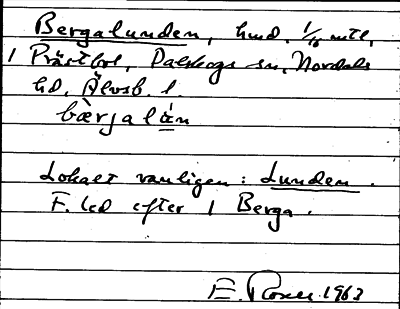 Bergalunden, hmd. 1/16 mtl,
1 Prästbol, Dalskogs sn, Nordals
hd, Älvsb. l.
bærjalán
Lokalt vanligen: Lunden.
F. led efter 1 Berga.
E. 1963